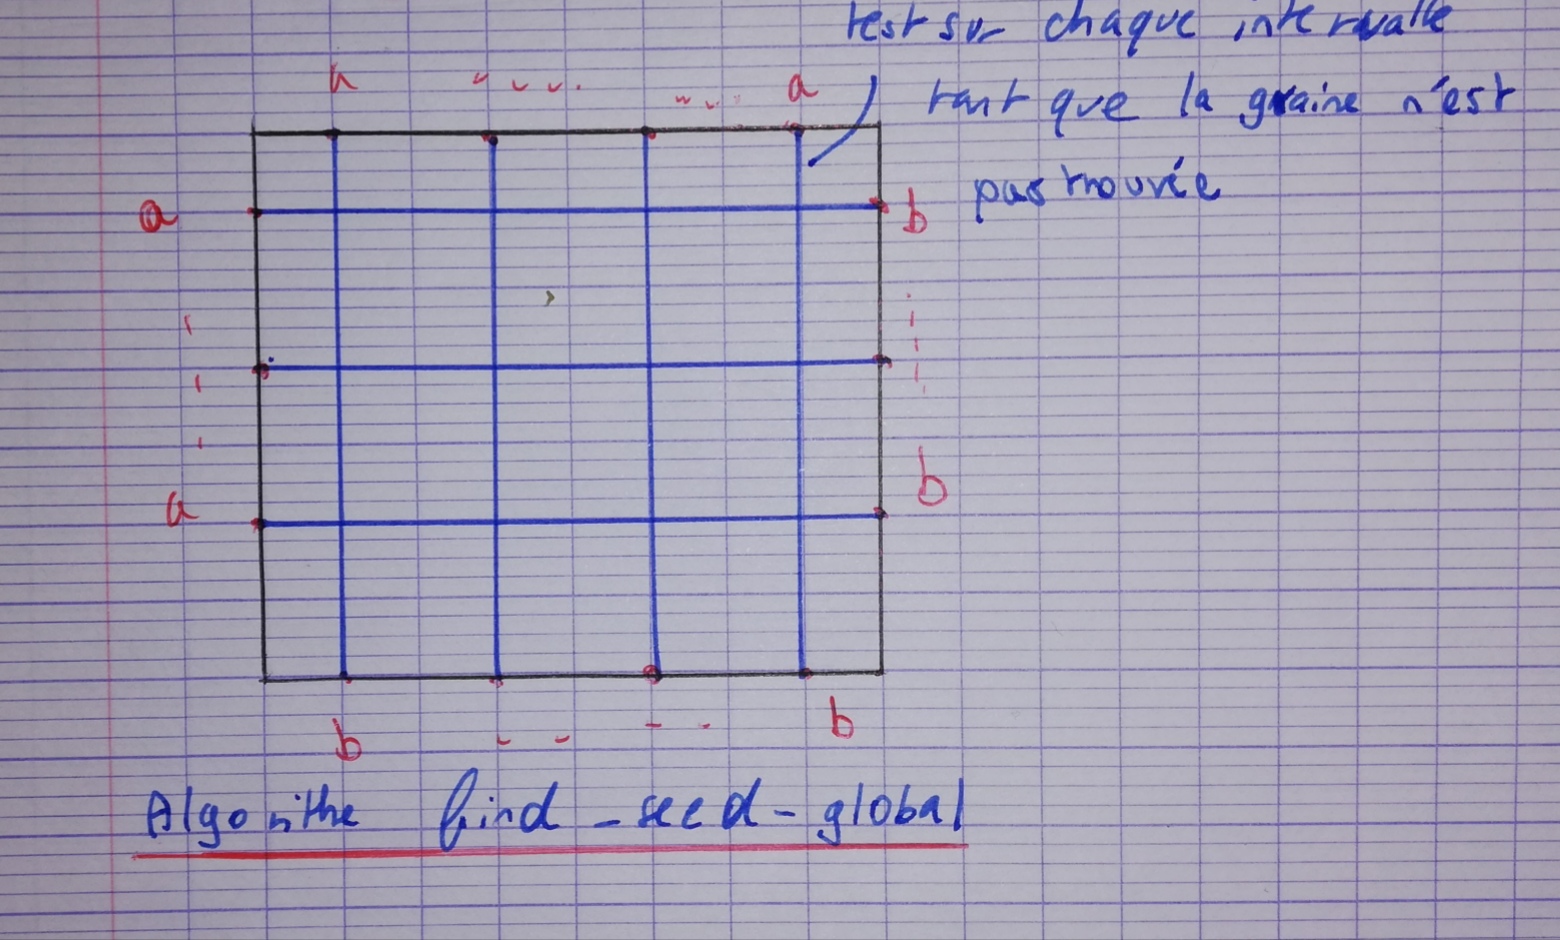 test sur chaque intervalle
a a
tant que la graine n'est
pas trouvée
a b
a b
b b
Algorithe find-seed-global